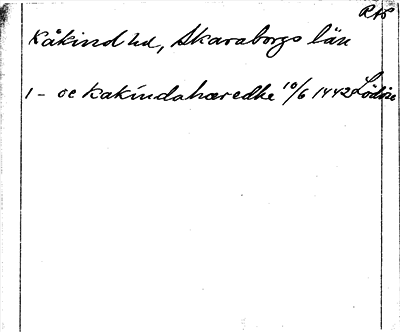 RAP
Kåkind hd, Skaraborgs län
1 - oc kakindahæredhe 10/6 1442 Lödöse